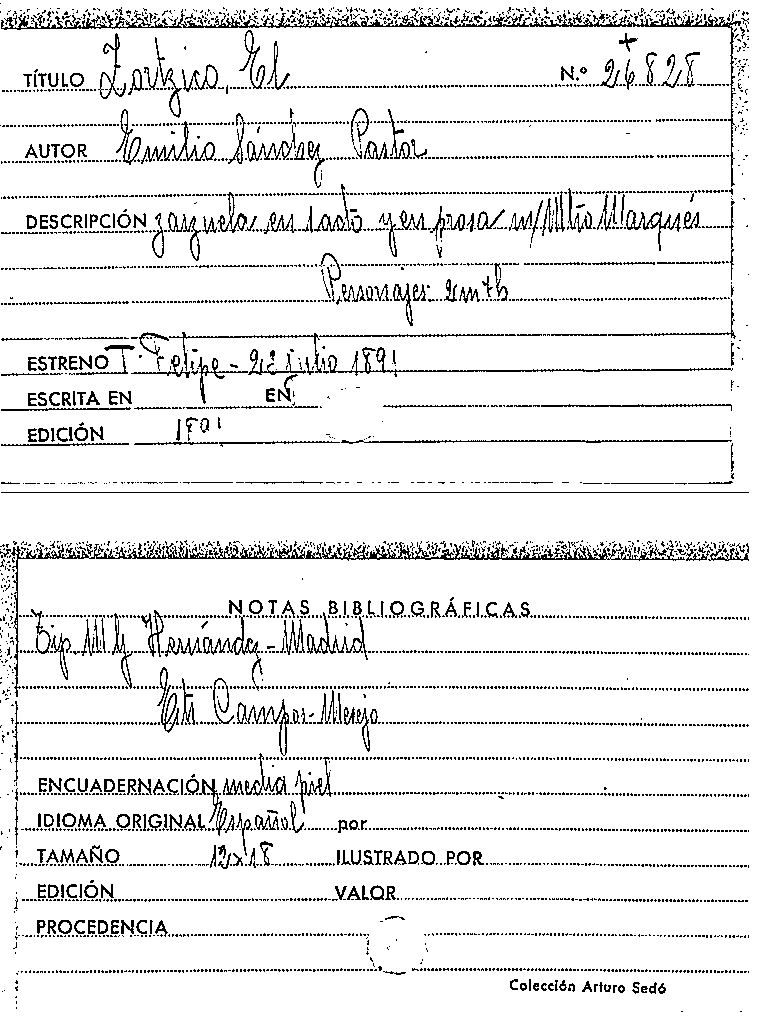 TÍTULO Zortzico, El N.º 26828
+
AUTOR Emilio Sánchez Pastor
DESCRIPCIÓN zarzuela en 1 acto y en prosa m/ Mtro Marqués
Personajes 2m7h
ESTRENO T. Felipe - 22 julio 1891
ESCRITA EN EN
EDICIÓN 1891
NOTAS BIBLIOGRÁFICAS
Tip. M G Hernández - Madrid
Edtr Campos - Madrid
ENCUADERNACIÓN media piel
IDIOMA ORIGINAL Español por
TAMAÑO 12x18 ILUSTRADO POR
EDICIÓN VALOR
PROCEDENCIA
Colección Arturo Sedó